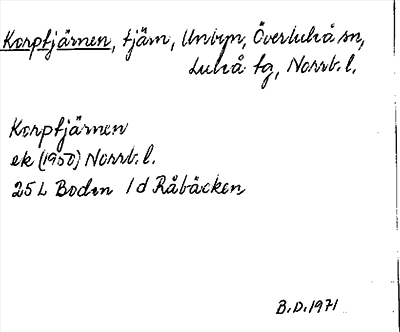 Korptjärnen, tjärn, Unbyn, Överluleå sn,
Luleå tg, Norrb. l.
Korptjärnen
ek (1950) Norrb. l.
25 L Boden 1 d Råbäcken
B.D. 1971